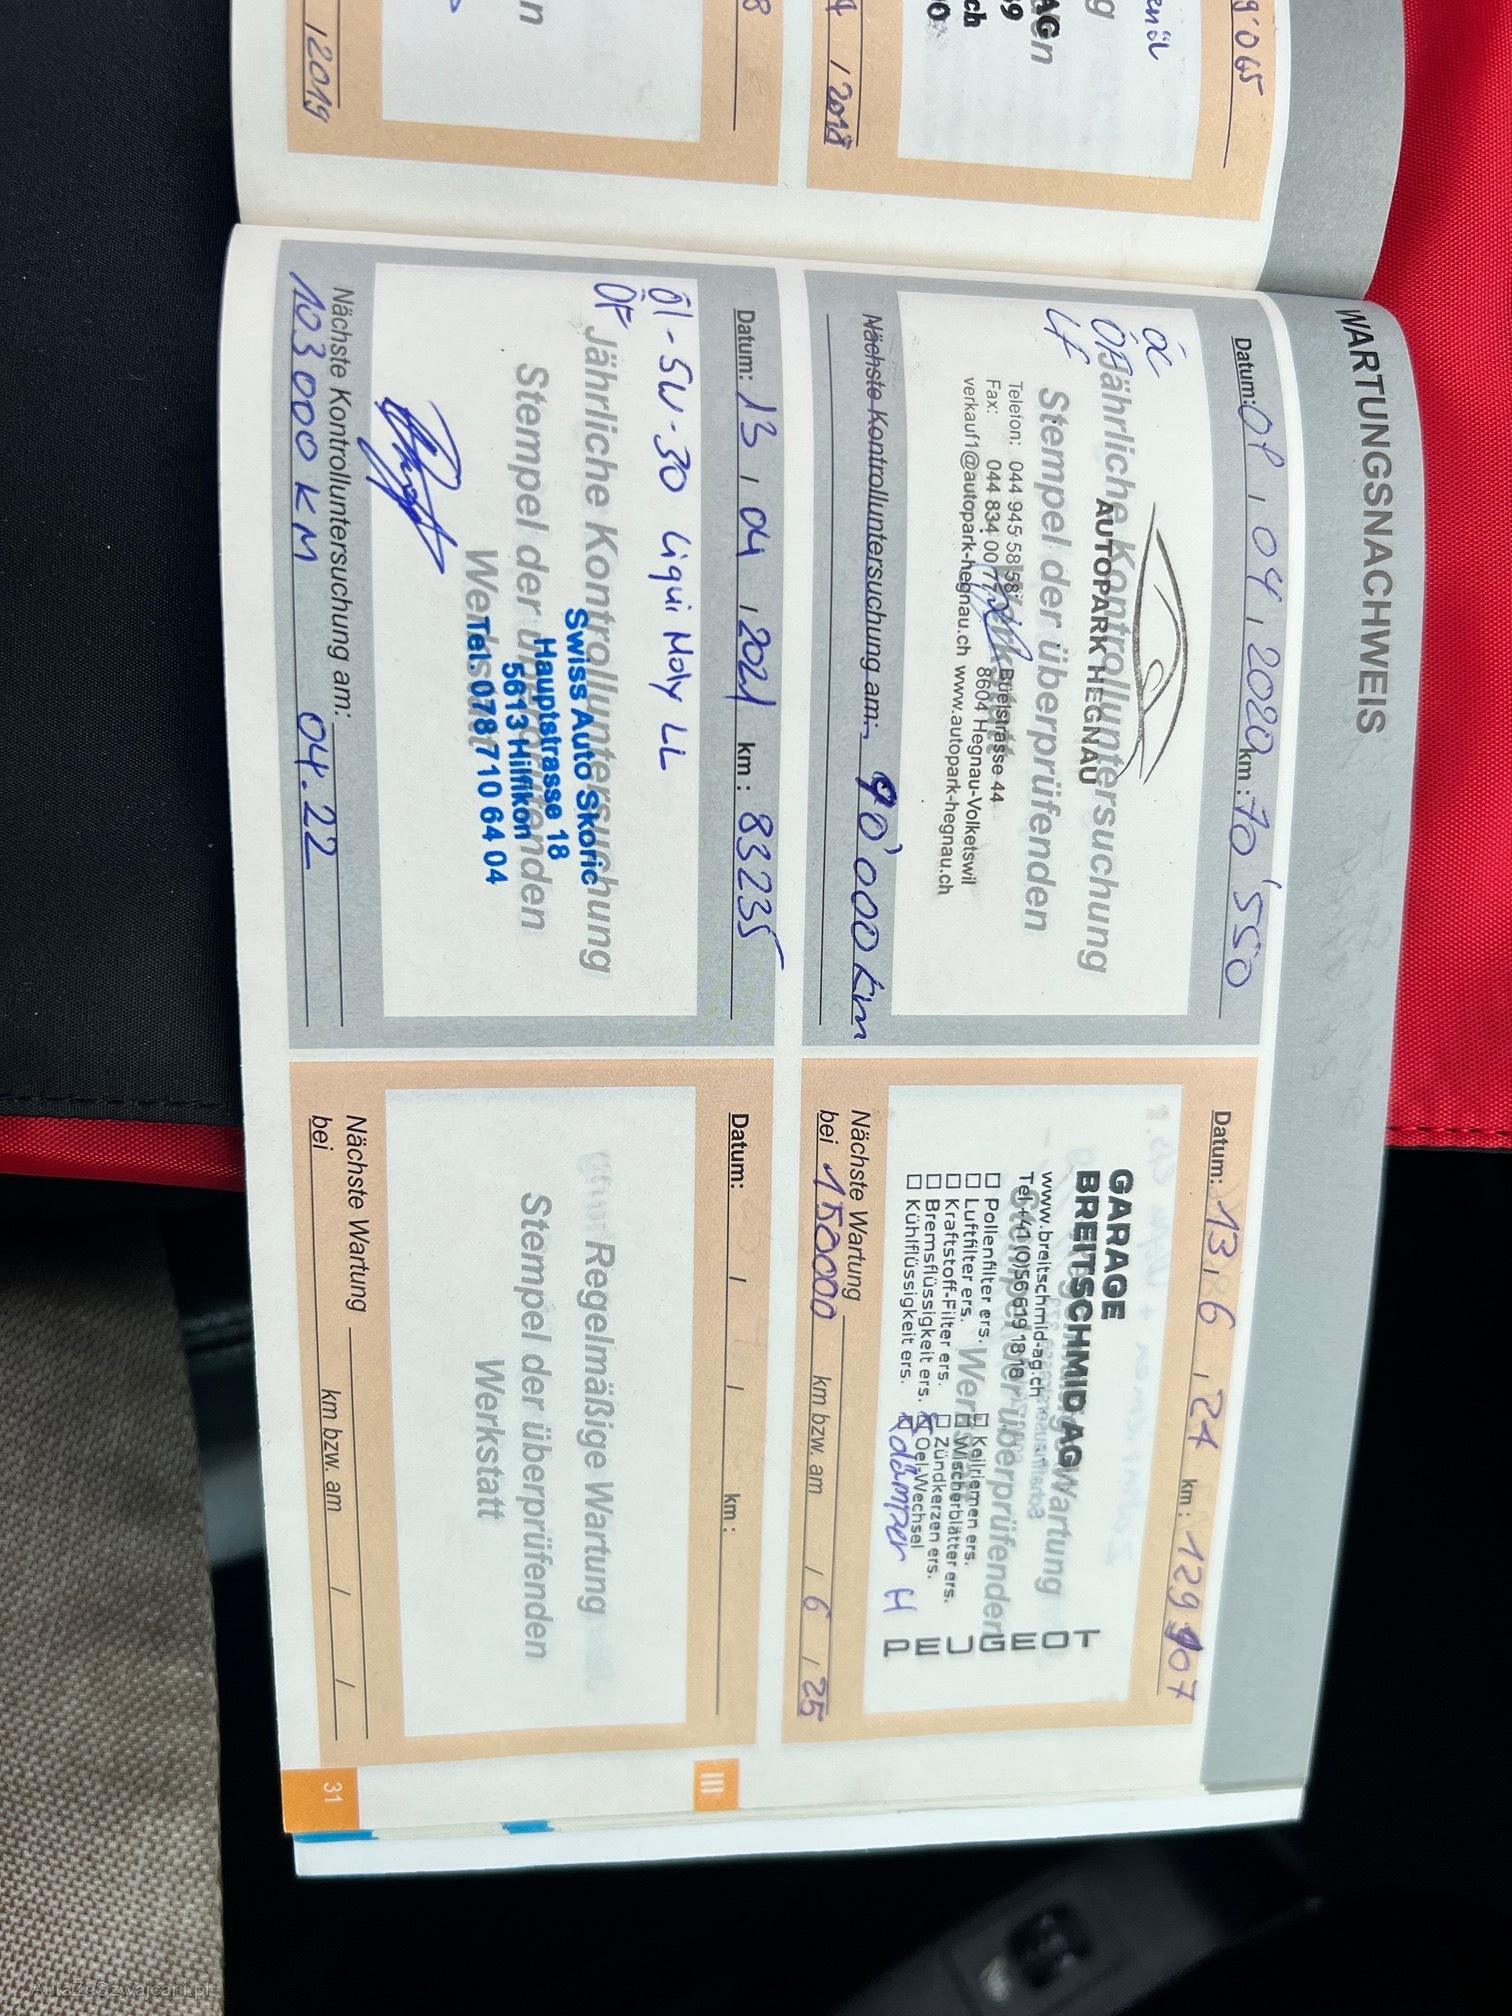 9'065
enöl
g
AGn
9
ch
00
4 / 2018
8
n
12019
WARTUNGSNACHWEIS
Datum: 08 , 04 , 2020 km : 70'550
ÖF
LF
Jährliche Kontrolluntersuchung
AUTOPARK HEGNAU
Stempel der überprüfenden
Telefon: 044 945 58 58
Büelstrasse 44
Fax: 044 834 00 77
8604 Hegnau-Volketswil
verkauf1@autopark-hegnau.ch www.autopark-hegnau.ch
Nächste Kontrolluntersuchung am: 90'000 km
Datum: 13 , 04 , 2021 km : 83235
Öl - 5W-30 Liqui Moly LL
ÖF
Jährliche Kontrolluntersuchung
Stempel der überprüfenden
Werkstatt
Swiss Auto Skoric
Hauptstrasse 18
5613 Hilfikon
Tel. 078 710 64 04
Nächste Kontrolluntersuchung am:
103000 KM 04.22
Datum: 13 , 6 , 24 km : 129 907
GARAGE
BREITSCHMID AG
www.breitschmid-ag.ch
Tel +41 (0)56 619 18 18
Wartung
Stempel der überprüfenden
☐ Pollenfilter ers. ☐ Keilriemen ers.
☐ Luftfilter ers. ☐ Wischerblätter ers.
☐ Kraftstoff-Filter ers. ☐ Zündkerzen ers.
☐ Bremsflüssigkeit ers. ☒ Oel-Wechsel
☐ Kühlflüssigkeit ers. ☒ dämper H
PEUGEOT
Nächste Wartung
bei 150000 km bzw. am / 6 / 25
Datum: / / km :
Regelmäßige Wartung
Stempel der überprüfenden
Werkstatt
Nächste Wartung
bei km bzw. am / /
III
31
AutaZeSzwajcarii.pl